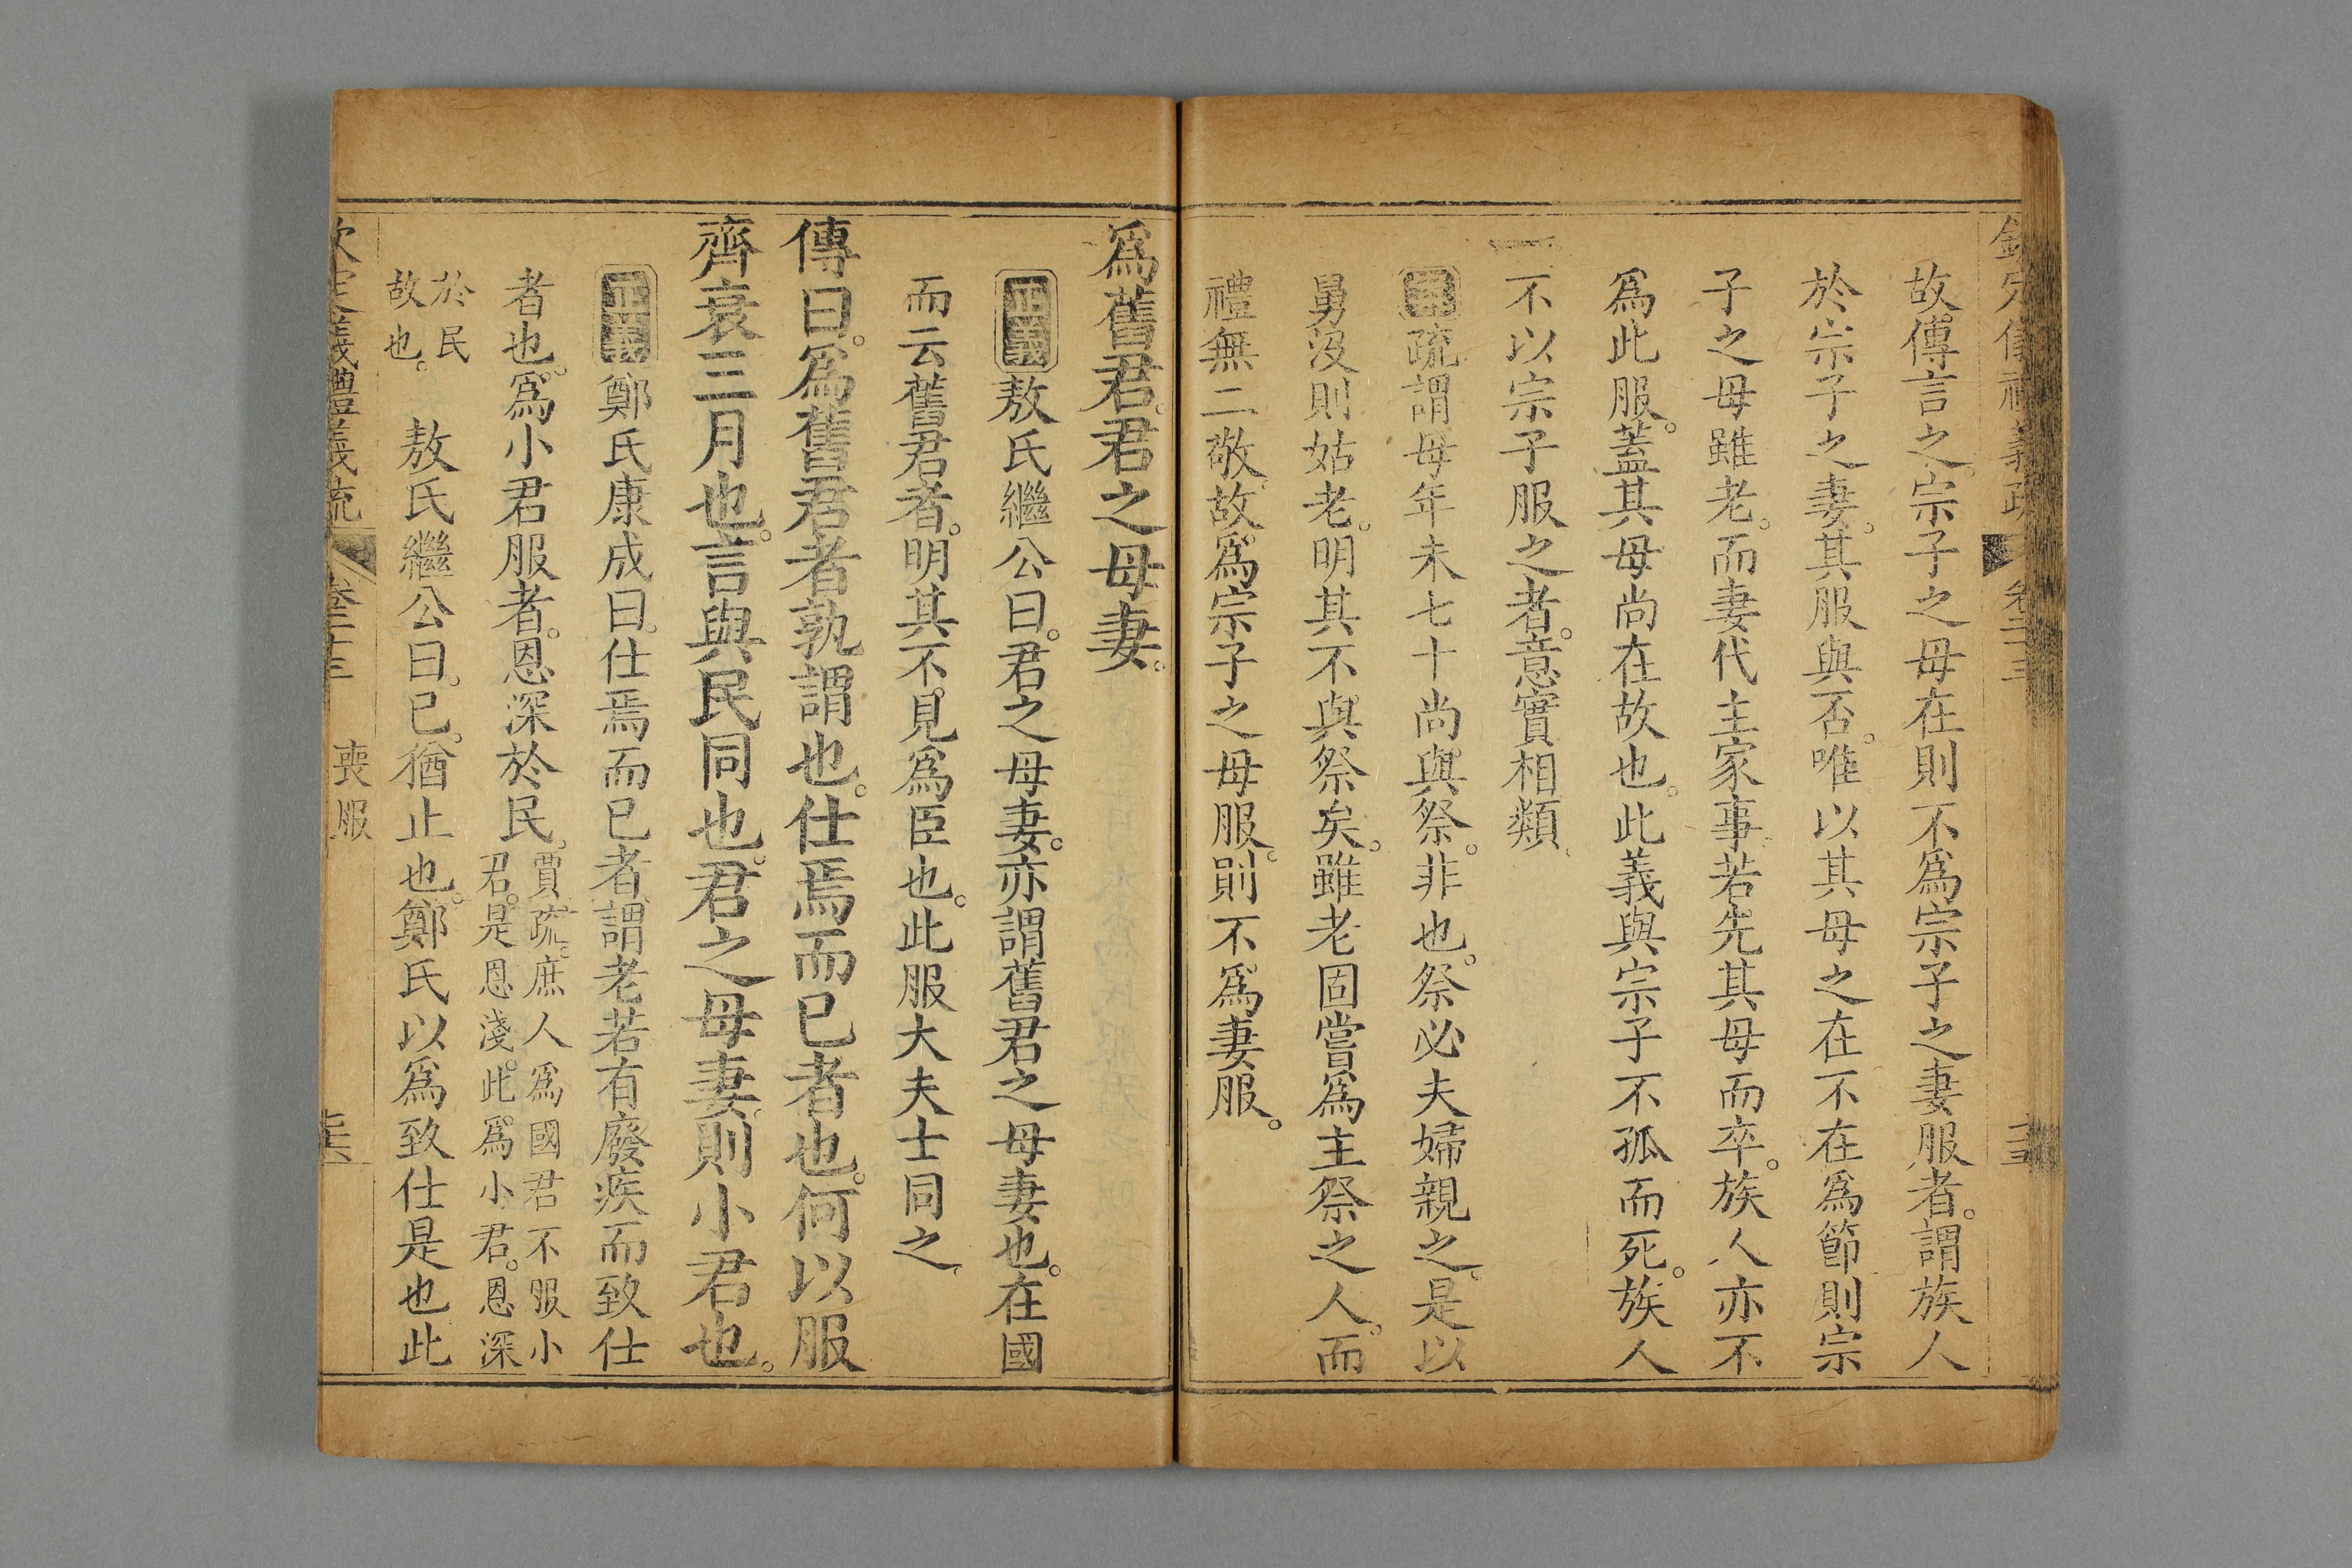 故傳言之。宗子之母在則不為宗子之妻服者。謂族人
於宗子之妻。其服與否。唯以其母之在不在為節則宗
子之母雖老。而妻代主家事。若先其母而卒。族人亦不
為此服。蓋其母尚在故也。此義與宗子不孤而死。族人
不以宗子服之者。意實相類
疏謂母年未七十尚與祭。非也。祭必夫婦親之。是以
舅沒則姑老。明其不與祭矣。雖老固嘗為主祭之人。而
禮無二敬。故為宗子之母服。則不為妻服。
為舊君。君之母妻。
正義敖氏繼公曰。君之母妻。亦謂舊君之母妻也。在國
而云舊君者。明其不見為臣也。此服大夫士同之
傳曰。為舊君者孰謂也。仕焉而已者也。何以服
齊衰三月也。言與民同也。君之母妻。則小君也。
正義鄭氏康成曰。仕焉而已者。謂老若有廢疾而致仕
者也。為小君服者。恩深於民。賈疏。庶人為國君不服小
君。是恩淺。此為小君。恩深
於民
故也。敖氏繼公曰。已。猶止也。鄭氏以為致仕是也此
欽定儀禮義疏 卷二十三 喪服